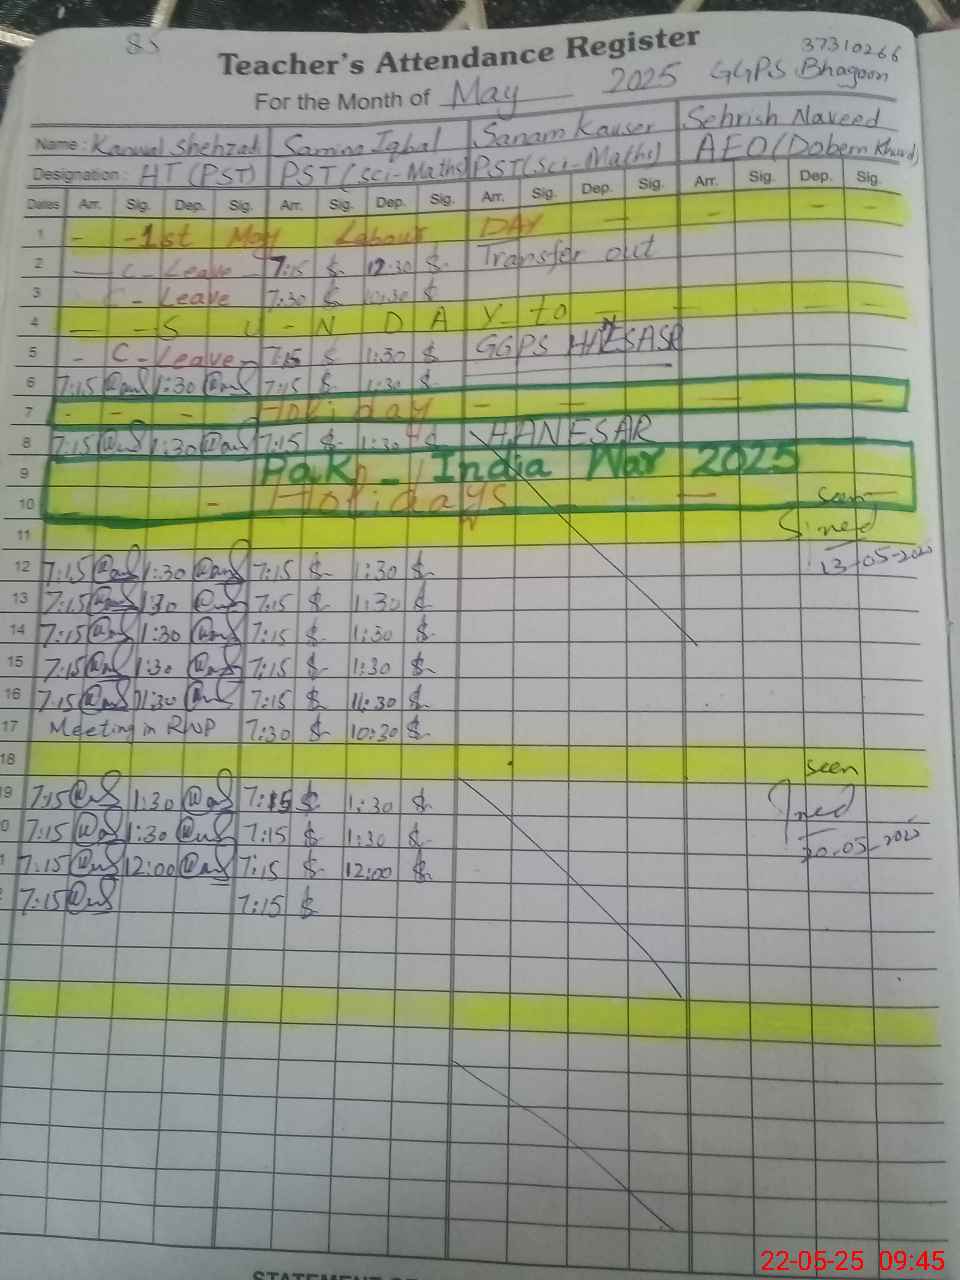 85
Teacher's Attendance Register
37310266
For the Month of May 2025 GGPS Bhagoon
Name: Kanwal Shehzadi Samina Iqbal Sanam Kauser Sehrish Naveed
Designation: HT (PST) PST (Sci-Maths) PST (Sci-Maths) AEO (Dobern Khurd)
Dates Arr. Sig. Dep. Sig. Arr. Sig. Dep. Sig. Arr. Sig. Dep. Sig. Arr. Sig. Dep. Sig.
1 - - 1st May Labour DAY - - - -
2 - C - Leave - 7:15 12:30 Transfer out
3 C - Leave 7:30 10:30
4 - - S U - N D A Y to - - - -
5 - C - Leave - 7:15 1:30 GGPS HANESAR
6 7:15 1:30 7:15 1:30
7 - - - Holiday - - - -
8 7:15 1:30 7:15 1:30 HANESAR
9 Pak - India War 2025
10 - Holidays - seen
11
13-05-2025
12 7:15 1:30 7:15 1:30
13 7:15 1:30 7:15 1:30
14 7:15 1:30 7:15 1:30
15 7:15 1:30 7:15 1:30
16 7:15 11:30 7:15 11:30
17 Meeting in RWP 7:30 10:30
18 seen
9 7:15 1:30 7:15 1:30
0 7:15 1:30 7:15 1:30
20-05-2025
1 7:15 12:00 7:15 12:00
7:15 7:15
22-05-25 09:45